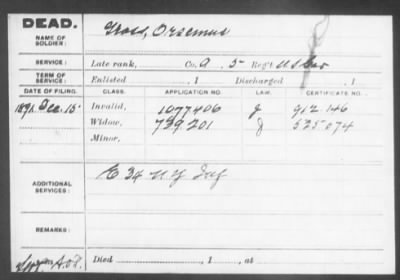 DEAD.
NAME OF SOLDIER: Gross, Orsemus
SERVICE: Late rank, Co. A. 5 Reg't US
TERM OF SERVICE: Enlisted , 1 Discharged , 1
DATE OF FILING. CLASS. APPLICATION NO. LAW. CERTIFICATE NO.
1891 Dec. 15 Invalid, 1077406 J 912.146
Widow, 739.201 J 525074
Minor,
ADDITIONAL SERVICES: E 34 N Y Inf
REMARKS:
Died , 1 , at